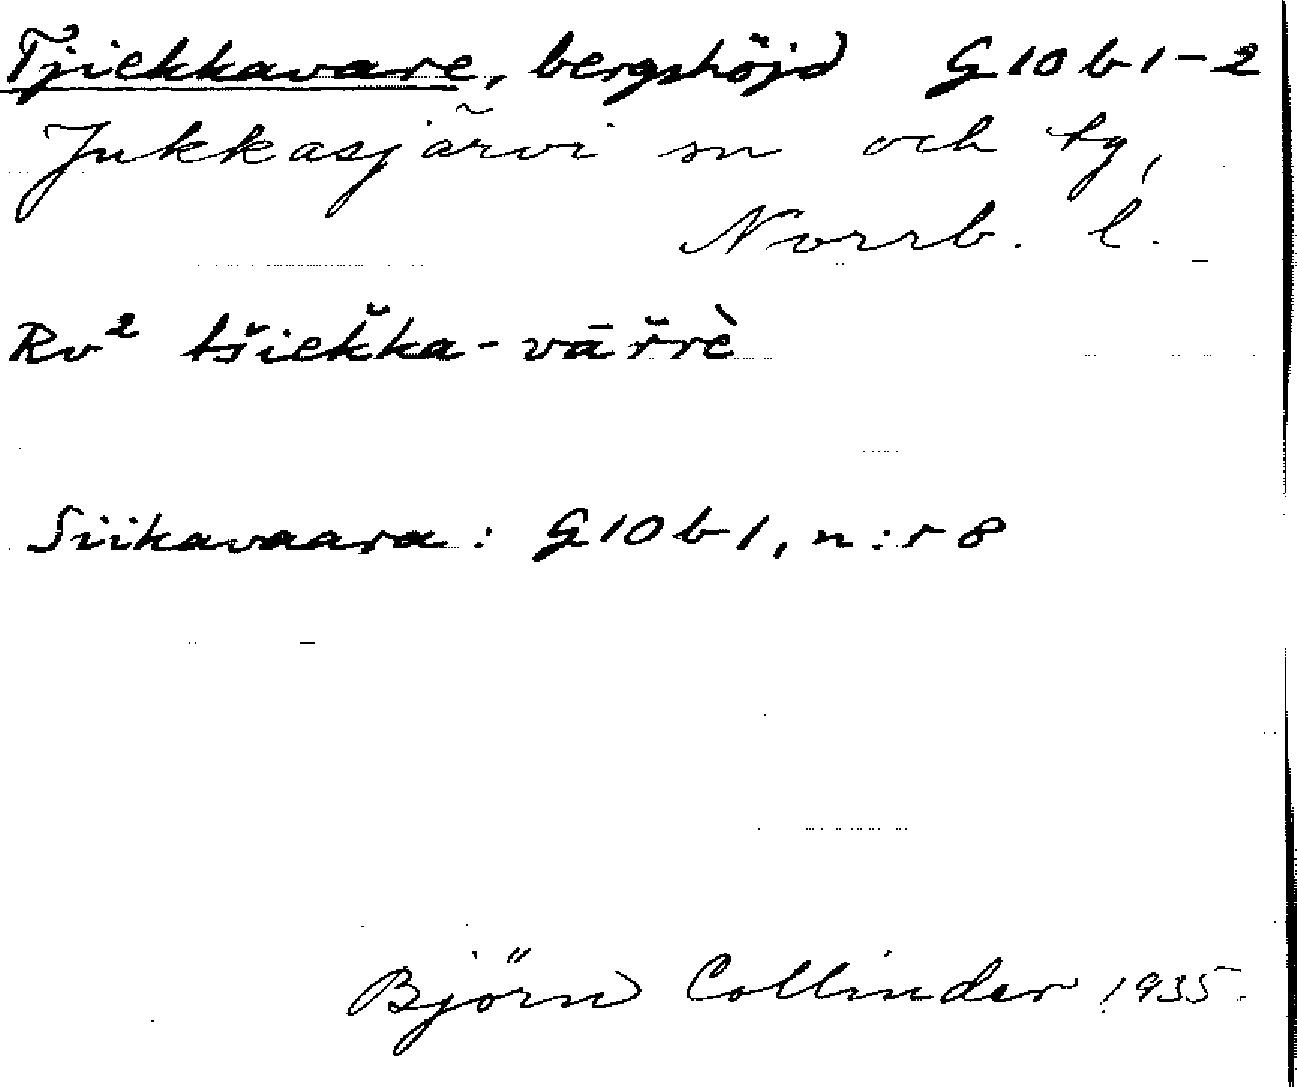 Tjiekkavare, bergshöjd G 10 b 1-2
Jukkasjärvi sn och tg,
Norrb. l.
Rv² tšiek̆ka-vār̆rè
Siikavaara: G 10 b 1, n:r 8
Björn Collinder 1935.